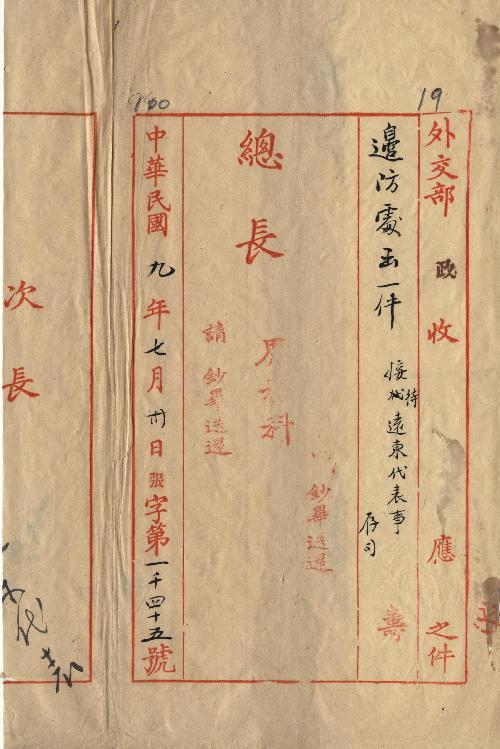 19
外交部 政 收 應 之件
邊防處函一件
接待
遠東代表事
存司
壽
鈔畢送還
總長
請 鈔畢送還
中華民國 九 年 七 月 卅 日 張 字第 一千四十五 號
次長